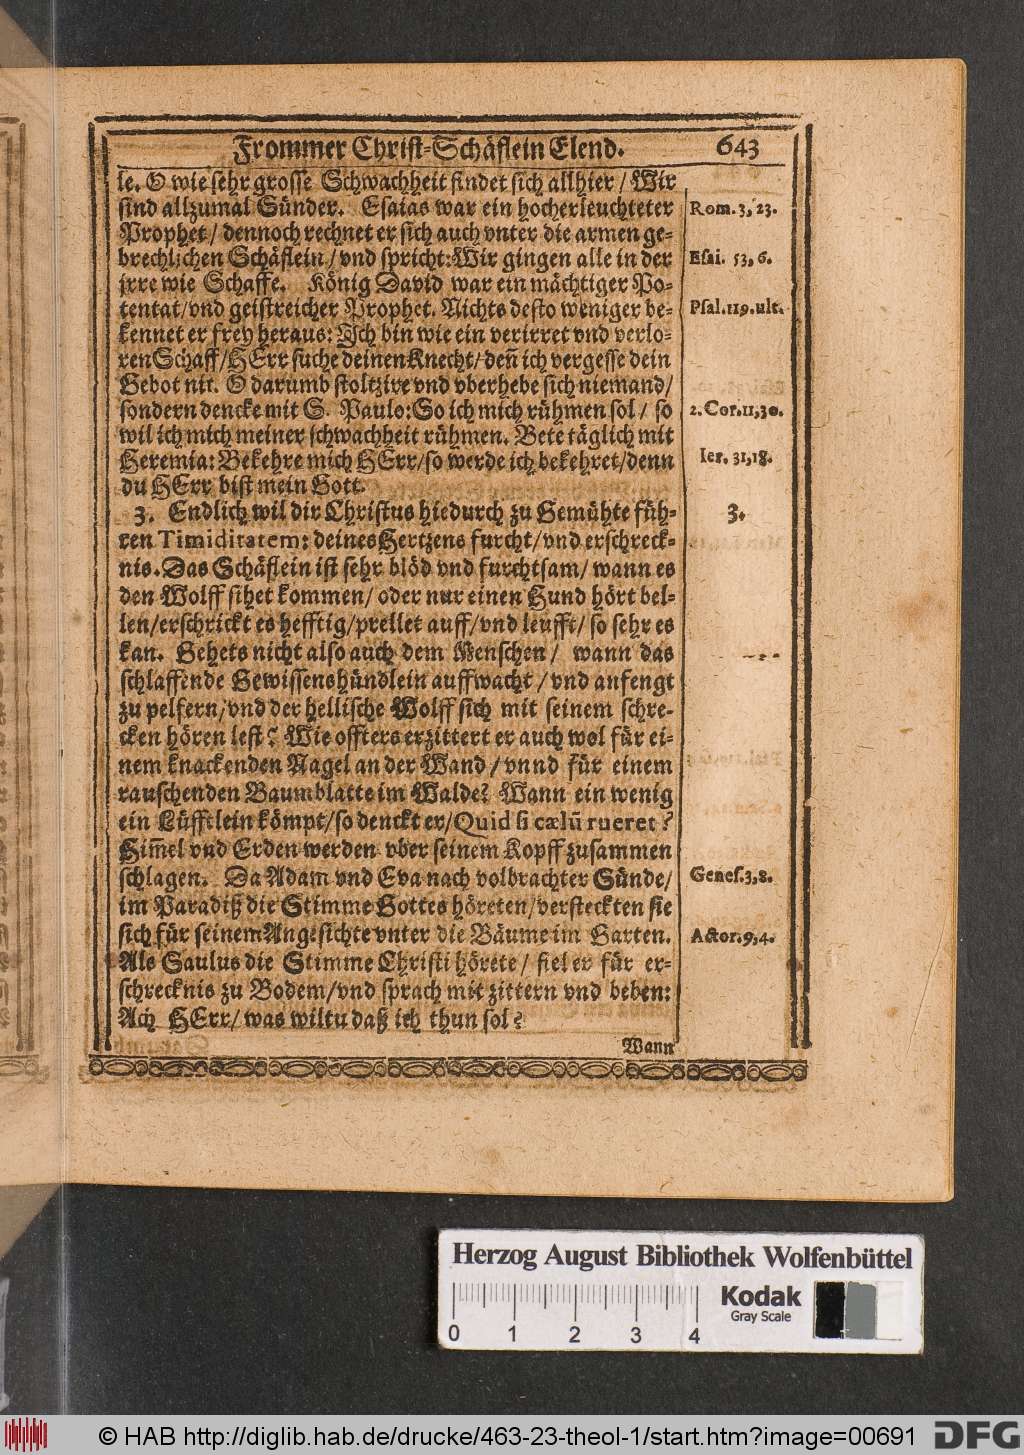 Frommer Christ-Schäflein Elend. 643
le. O wie sehr grosse Schwachheit findet sich allhier / Wir
sind allzumal Sünder. Esaias war ein hocherleuchteter
Rom. 3, 23.
Prophet / dennoch rechnet er sich auch vnter die armen ge-
brechlichen Schäflein / vnd spricht: Wir gingen alle in der
Esai. 53, 6.
jrre wie Schaffe. König David war ein mächtiger Po-
tentat / vnd geistreicher Prophet. Nichts desto weniger be-
Psal. 119. ult.
kennet er frey heraus: Jch bin wie ein verirret vnd verlo-
ren Schaff / HErr suche deinen Knecht / deñ ich vergesse dein
Gebot nit. O darumb stoltzire vnd vberhebe sich niemand /
sondern dencke mit S. Paulo: So ich mich rühmen sol / so
2. Cor. 11, 30.
wil ich mich meiner schwachheit rühmen. Bete täglich mit
Heremia: Bekehre mich HErr / so werde ich bekehret / denn
Ier. 31, 18.
du HErr bist mein Gott.
3. Endlich wil dir Christus hiedurch zu Gemühte füh-
3.
ren Timiditatem: deines Hertzens furcht / vnd erschreck-
nis. Das Schäflein ist sehr blöd vnd furchtsam / wann es
den Wolff sihet kommen / oder nur einen Hund hört bel-
len / erschrickt es hefftig / prellet auff / vnd leufft / so sehr es
kan. Gehets nicht also auch dem Menschen / wann das
schlaffende Gewissenshündlein auffwacht / vnd anfengt
zu pelfern / vnd der hellische Wolff sich mit seinem schre-
cken hören lest? Wie offters erzittert er auch wol für ei-
nem knackenden Nagel an der Wand / vnnd für einem
rauschenden Baumblatte im Walde? Wann ein wenig
ein Lüfftlein kömpt / so denckt er / Quid si cælũ rueret?
Him̃el vnd Erden werden vber seinem Kopff zusammen
schlagen. Da Adam vnd Eva nach volbrachter Sünde /
Genes. 3, 8.
im Paradiß die Stimme Gottes höreten / versteckten sie
sich für seinem Angesichte vnter die Bäume im Garten.
Actor. 9, 4.
Als Saulus die Stimme Christi hörete / fiel er für er-
schrecknis zu Bodem / vnd sprach mit zittern vnd beben:
Ach HErr / was wiltu daß ich thun sol?
Wann
Herzog August Bibliothek Wolfenbüttel
Kodak
Gray Scale
0 1 2 3 4
© HAB http://diglib.hab.de/drucke/463-23-theol-1/start.htm?image=00691
DFG